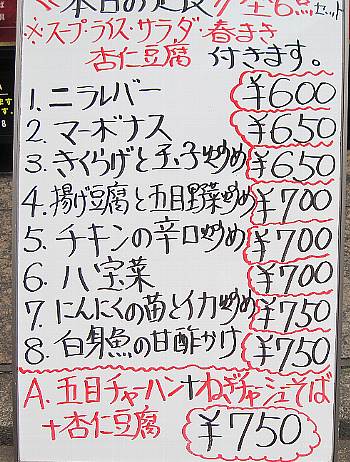 本日の定食 全6点セット
※スープ・ライス・サラダ・春まき
杏仁豆腐 付きます。
1. ニラレバー ¥600
2. マーボナス ¥650
3. きくらげと玉子炒め ¥650
4. 揚げ豆腐と五目野菜炒め ¥700
5. チキンの辛口炒め ¥700
6. 八宝菜 ¥700
7. にんにくの苗とイカ炒め ¥750
8. 白身魚の甘酢かけ ¥750
A. 五目チャーハン+ねぎチャーシューそば
+杏仁豆腐 ¥750